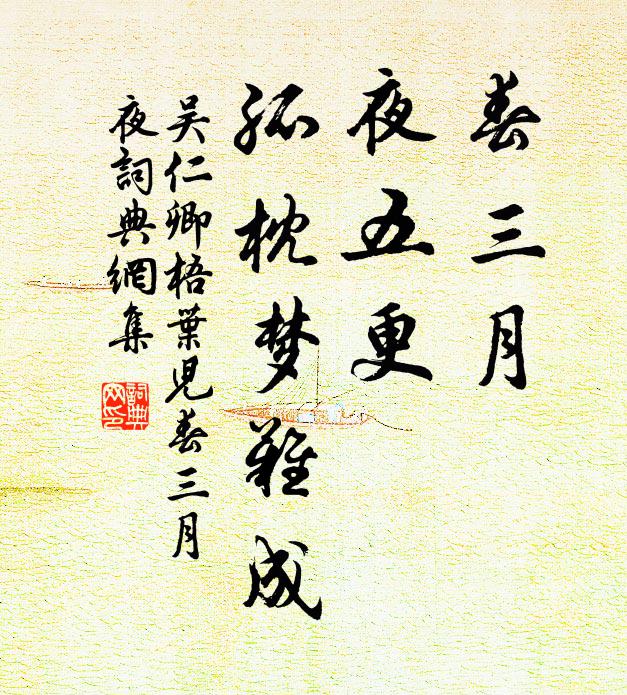 春三月
夜五更
孤枕梦難成
吴仁卿梧葉児春三月
夜詞典網集
詞典
网印